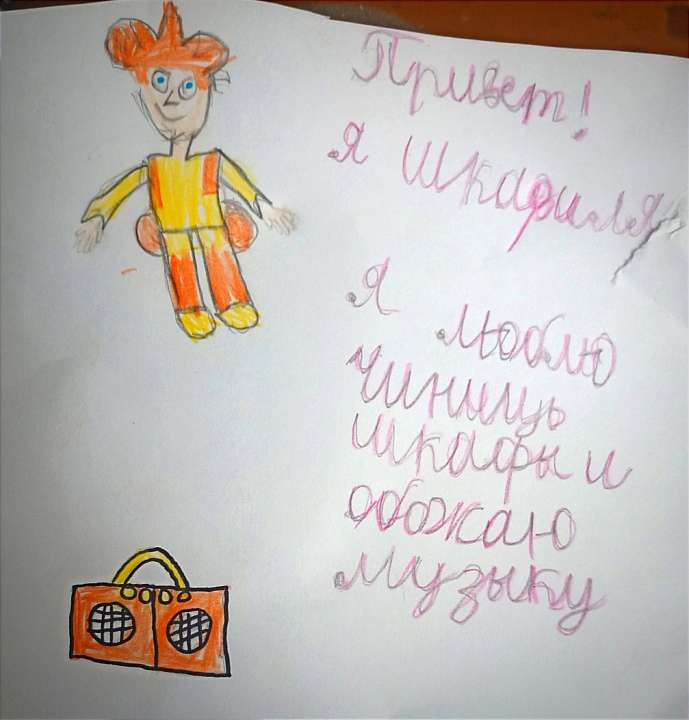 Привет!
я шкафиля
Я люблю
чинить
шкафы и
обожаю
музыку